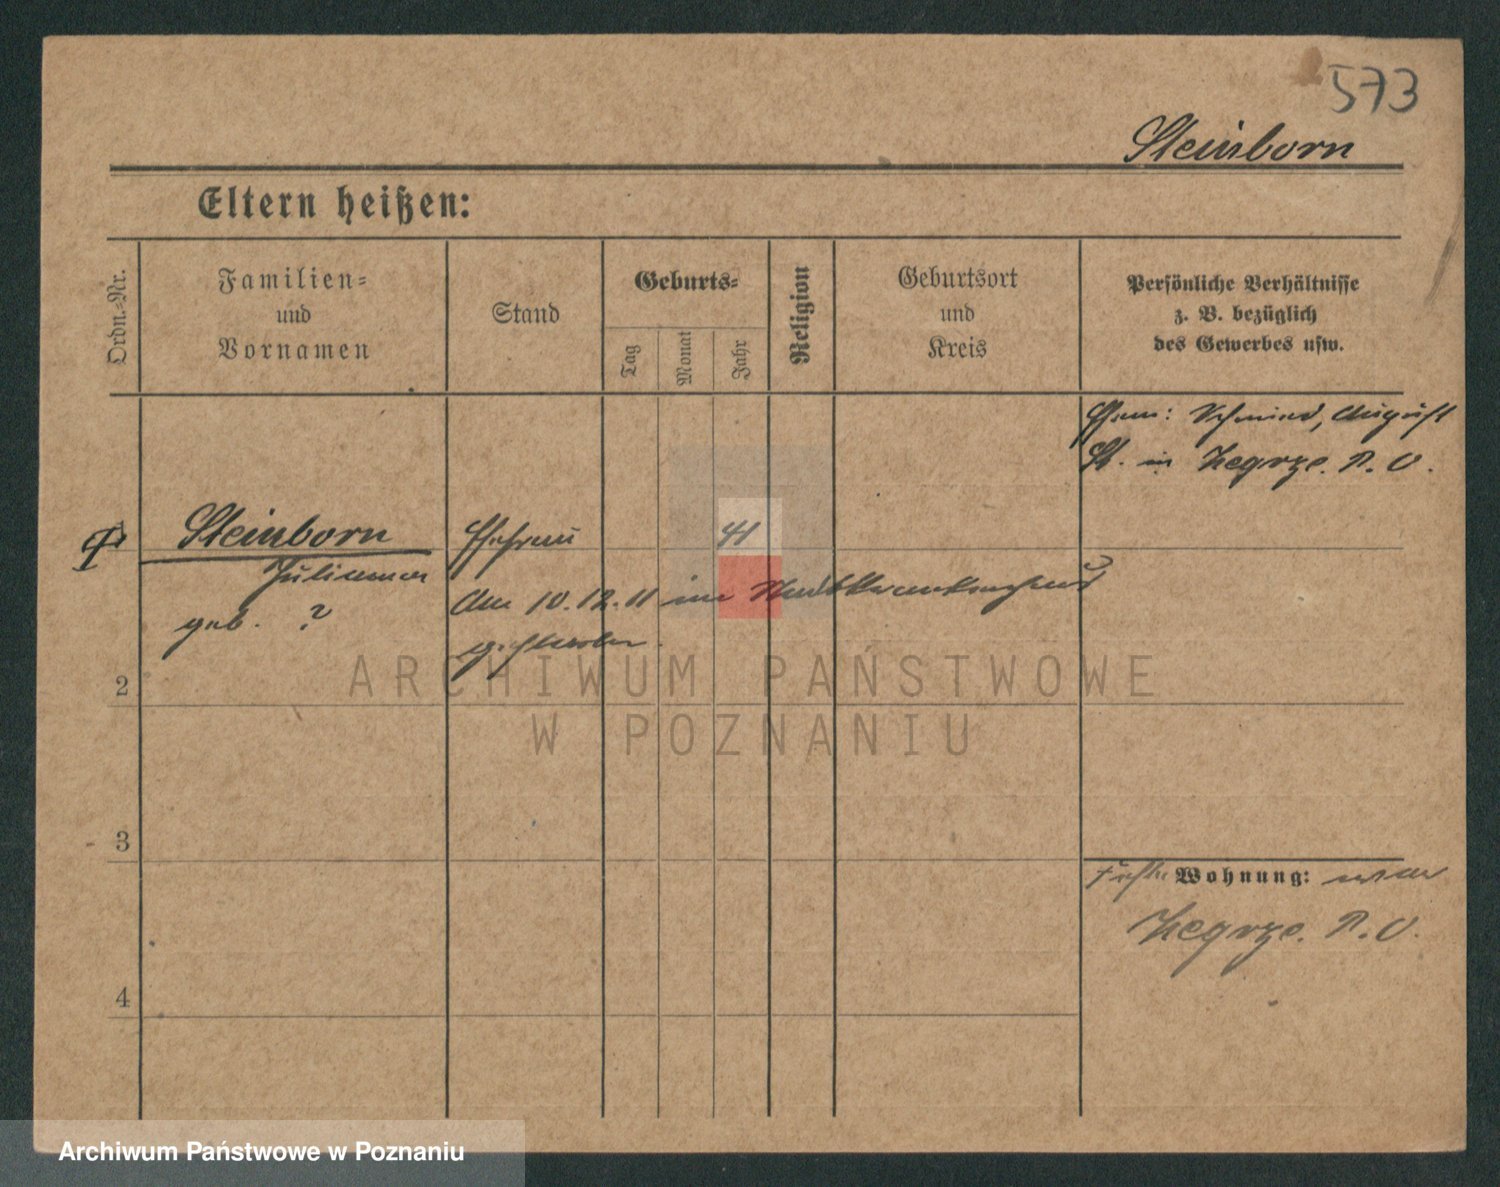 573
Steinborn
Eltern heißen:
Ordn.-Nr.
Familien-
und
Vornamen
Stand
Geburts-
Tag
Monat
Jahr
Religion
Geburtsort
und
Kreis
Persönliche Verhältnisse
z. B. bezüglich
des Gewerbes usw.
Ehem: Schmied, August
St. in Zegrze. P. O.
Steinborn
Ehefrau
41
Julianna
geb. ?
Am 10.12.11 im Stadtkrankenhaus
gestorben.
2
3
4
Wohnung: war
Zegrze. P. O.
ARCHIWUM PAŃSTWOWE
W POZNANIU
Archiwum Państwowe w Poznaniu